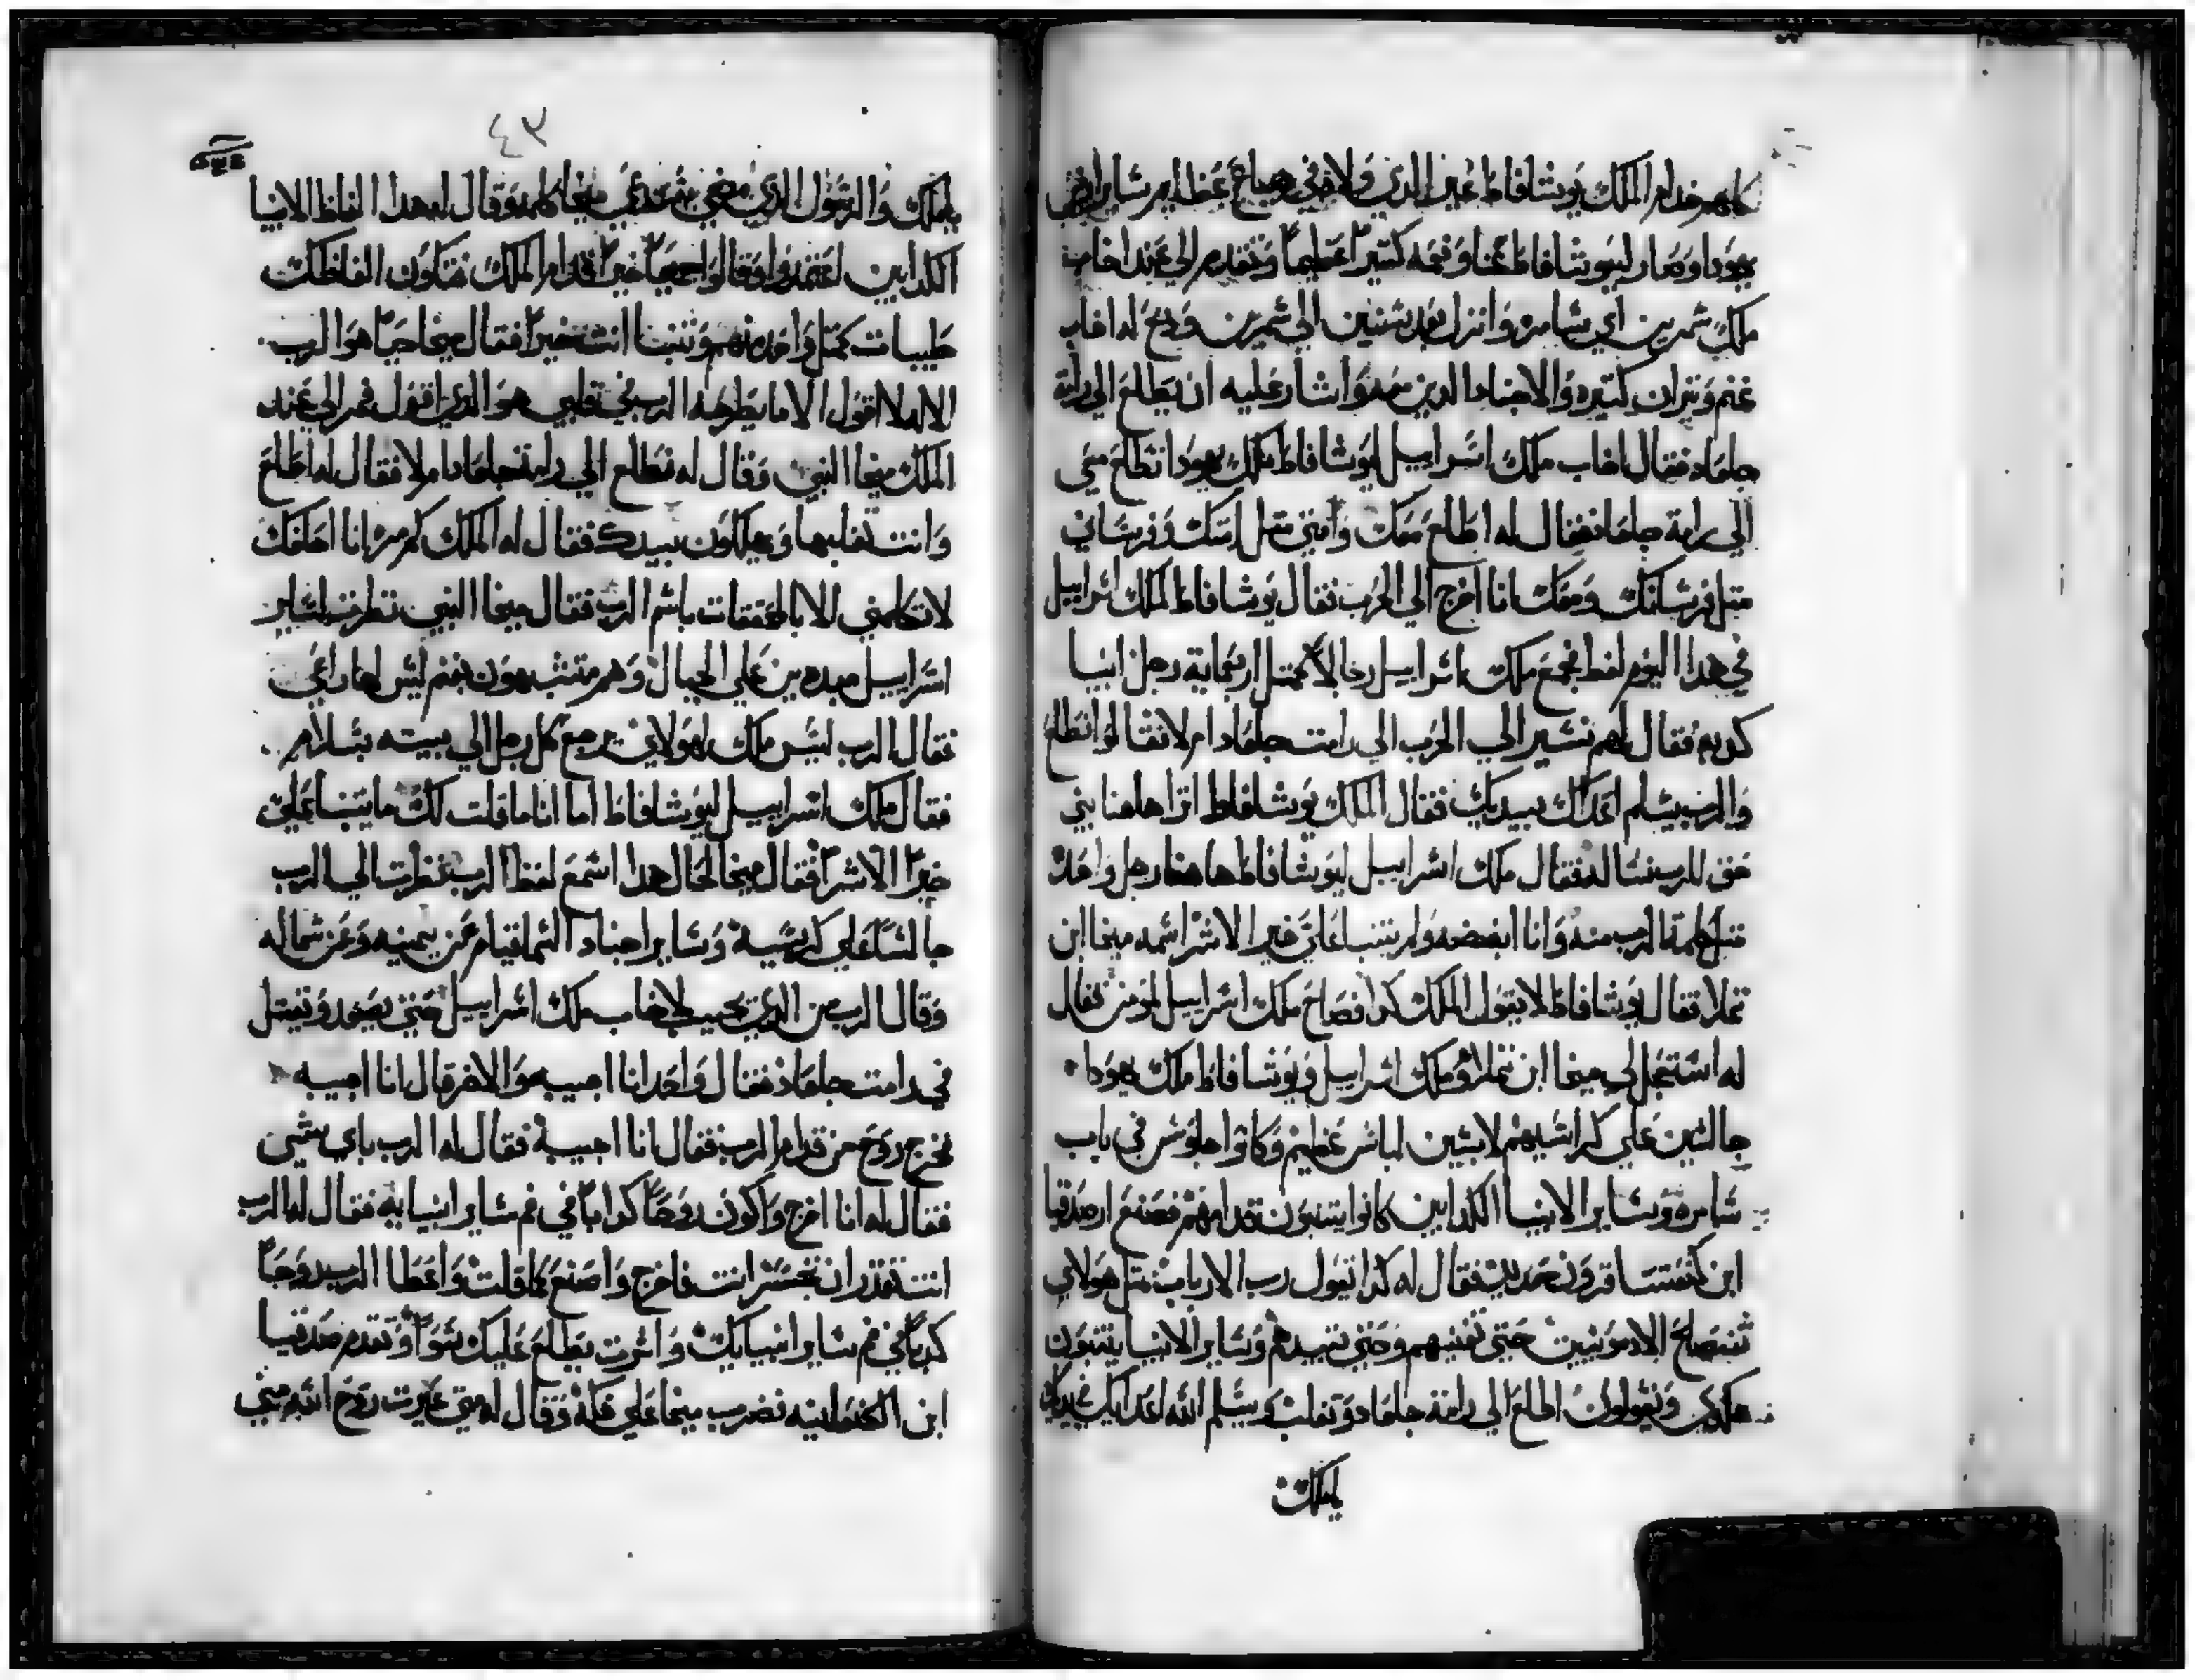 كلهم خدام الملك يوشافاط غير الدي ولا في صياع عظايم ساير ارض
يهودا وصار ليوشافاط غنا ومجد كتير اعظيما وتقدم الي عند اخاب
ملك شمرين اي سامره وانزل بعد سنين الي شمرين ودبح له اخاب
غنم وتيران كتيره والاجناد الدين معه واشار عليه ان يطلع الي رامة
جلعاد فقال اخاب ملك اسراييل ليوشافاط ملك يهودا تطلع معي
الي رامة جلعاد فقال له اطلع معك وانني متل امتك وفرساني
متل فرسانك ومعك انا اخرج الي الحرب فقال يوشافاط لملك اسراييل
في هدا اليوم لفظ فجمع ملك اسراييل رجالا كمتل اربعماية رجل انبيا
كدبه فقال لهم نسير الي الحرب الي رامت جلعاد ام لا فقالوا نطلع
والرب يسلم اعداك بيديك فقال الملك يوشافاط اترا هاهنا نبي
حق للرب نساله فقال ملك اسراييل ليوشافاط هاهنا رجل واحد
نسل كلمة الرب منه وانا ابغضه ولم يتنبا علي خير الا شرا اسمه ميخا ابن
نملا فقال يوشافاط لا يقول الملك كدا فصاح ملك اسراييل لمومن فقال
له استعجل لي ميخا ابن نملا وملك اسراييل ويوشافاط ملك يهودا
جالسين علي كراسيهم لابسين لباس عظيم وكانوا جلوس في باب
سامره وساير الانبيا الكدابين كانوا يتنبون قدامهم فصنع ارصدقيا
ابن كنعنتسا قرون حديد فقال له كدا تقول رب الارباب متل هولاي
تنتصلح الادمونيين حتي تفنيهم وحتي تبيدهم وساير الانبيا يتنبون
هكدي ويقولون اطلع الي رامة جلعاد وتغلب ويسلم الله اعدايك بيديك
يالملك
٤٣
يالملك والرسول الدي مضي يستدعي ميخا كلمه وقال له هدا الفاظ الانبيا
الكدابين اعتمدوا وقالوا جميعا خيرا قدام الملك فتكون الفاظك
طيبات كمتل واحد منهم وتنبا انت خيرا فقال ميخا حيا هو الرب
الاله لا اقول الا ما يطرحه الرب في قلبي هو الدي اقول فمر الي عند
الملك ميخا النبي وقال له نطلع الي رامة جلعاد ام لا فقال له اطلع
وانت تغلبها ويهلكون بيدك فقال له الملك كم مره انا احلفك
لا تكلمني الا بالحققات باسم الرب فقال ميخا النبي نظرت لساير
اسراييل مبددين علي الجبال وهم متشبهون بغنم ليس لها راعي
فقال الرب ليس ملك لهولاي يرجع كل رجل الي بيته بسلام
فقال ملك اسراييل ليوشافاط اما انا ما قلت لك ما يتنبا علي
خيرا الا شرا فقال ميخا لحال هدا اسمع لفظ الرب نظرت الي الرب
جالسا علي كرسيه وساير اجناد السما قيام عن يمينه وعن شماله
وقال الرب من الدي يجيب لاخاب ملك اسراييل حتي يصعد ويقتل
في رامت جلعاد فقال واحد انا اجيبه والاخر قال انا اجيبه
فخرج روح من قدام الرب فقال انا اجيبه فقال له الرب باي شيي
فقال له انا اخرج واكون روحا كدابا في فم ساير انبيايه فقال له الرب
انت تقدر ان تجسر انت فاخرج واصنع كما قلت واعطا الرب روحا
كدبا في فم ساير انبيايك وامرت يطلع عليك سوا وتقدم صدقيا
ابن الكنعانيه فضرب ميخا علي فكه وقال له متي عبرت روح الله مني